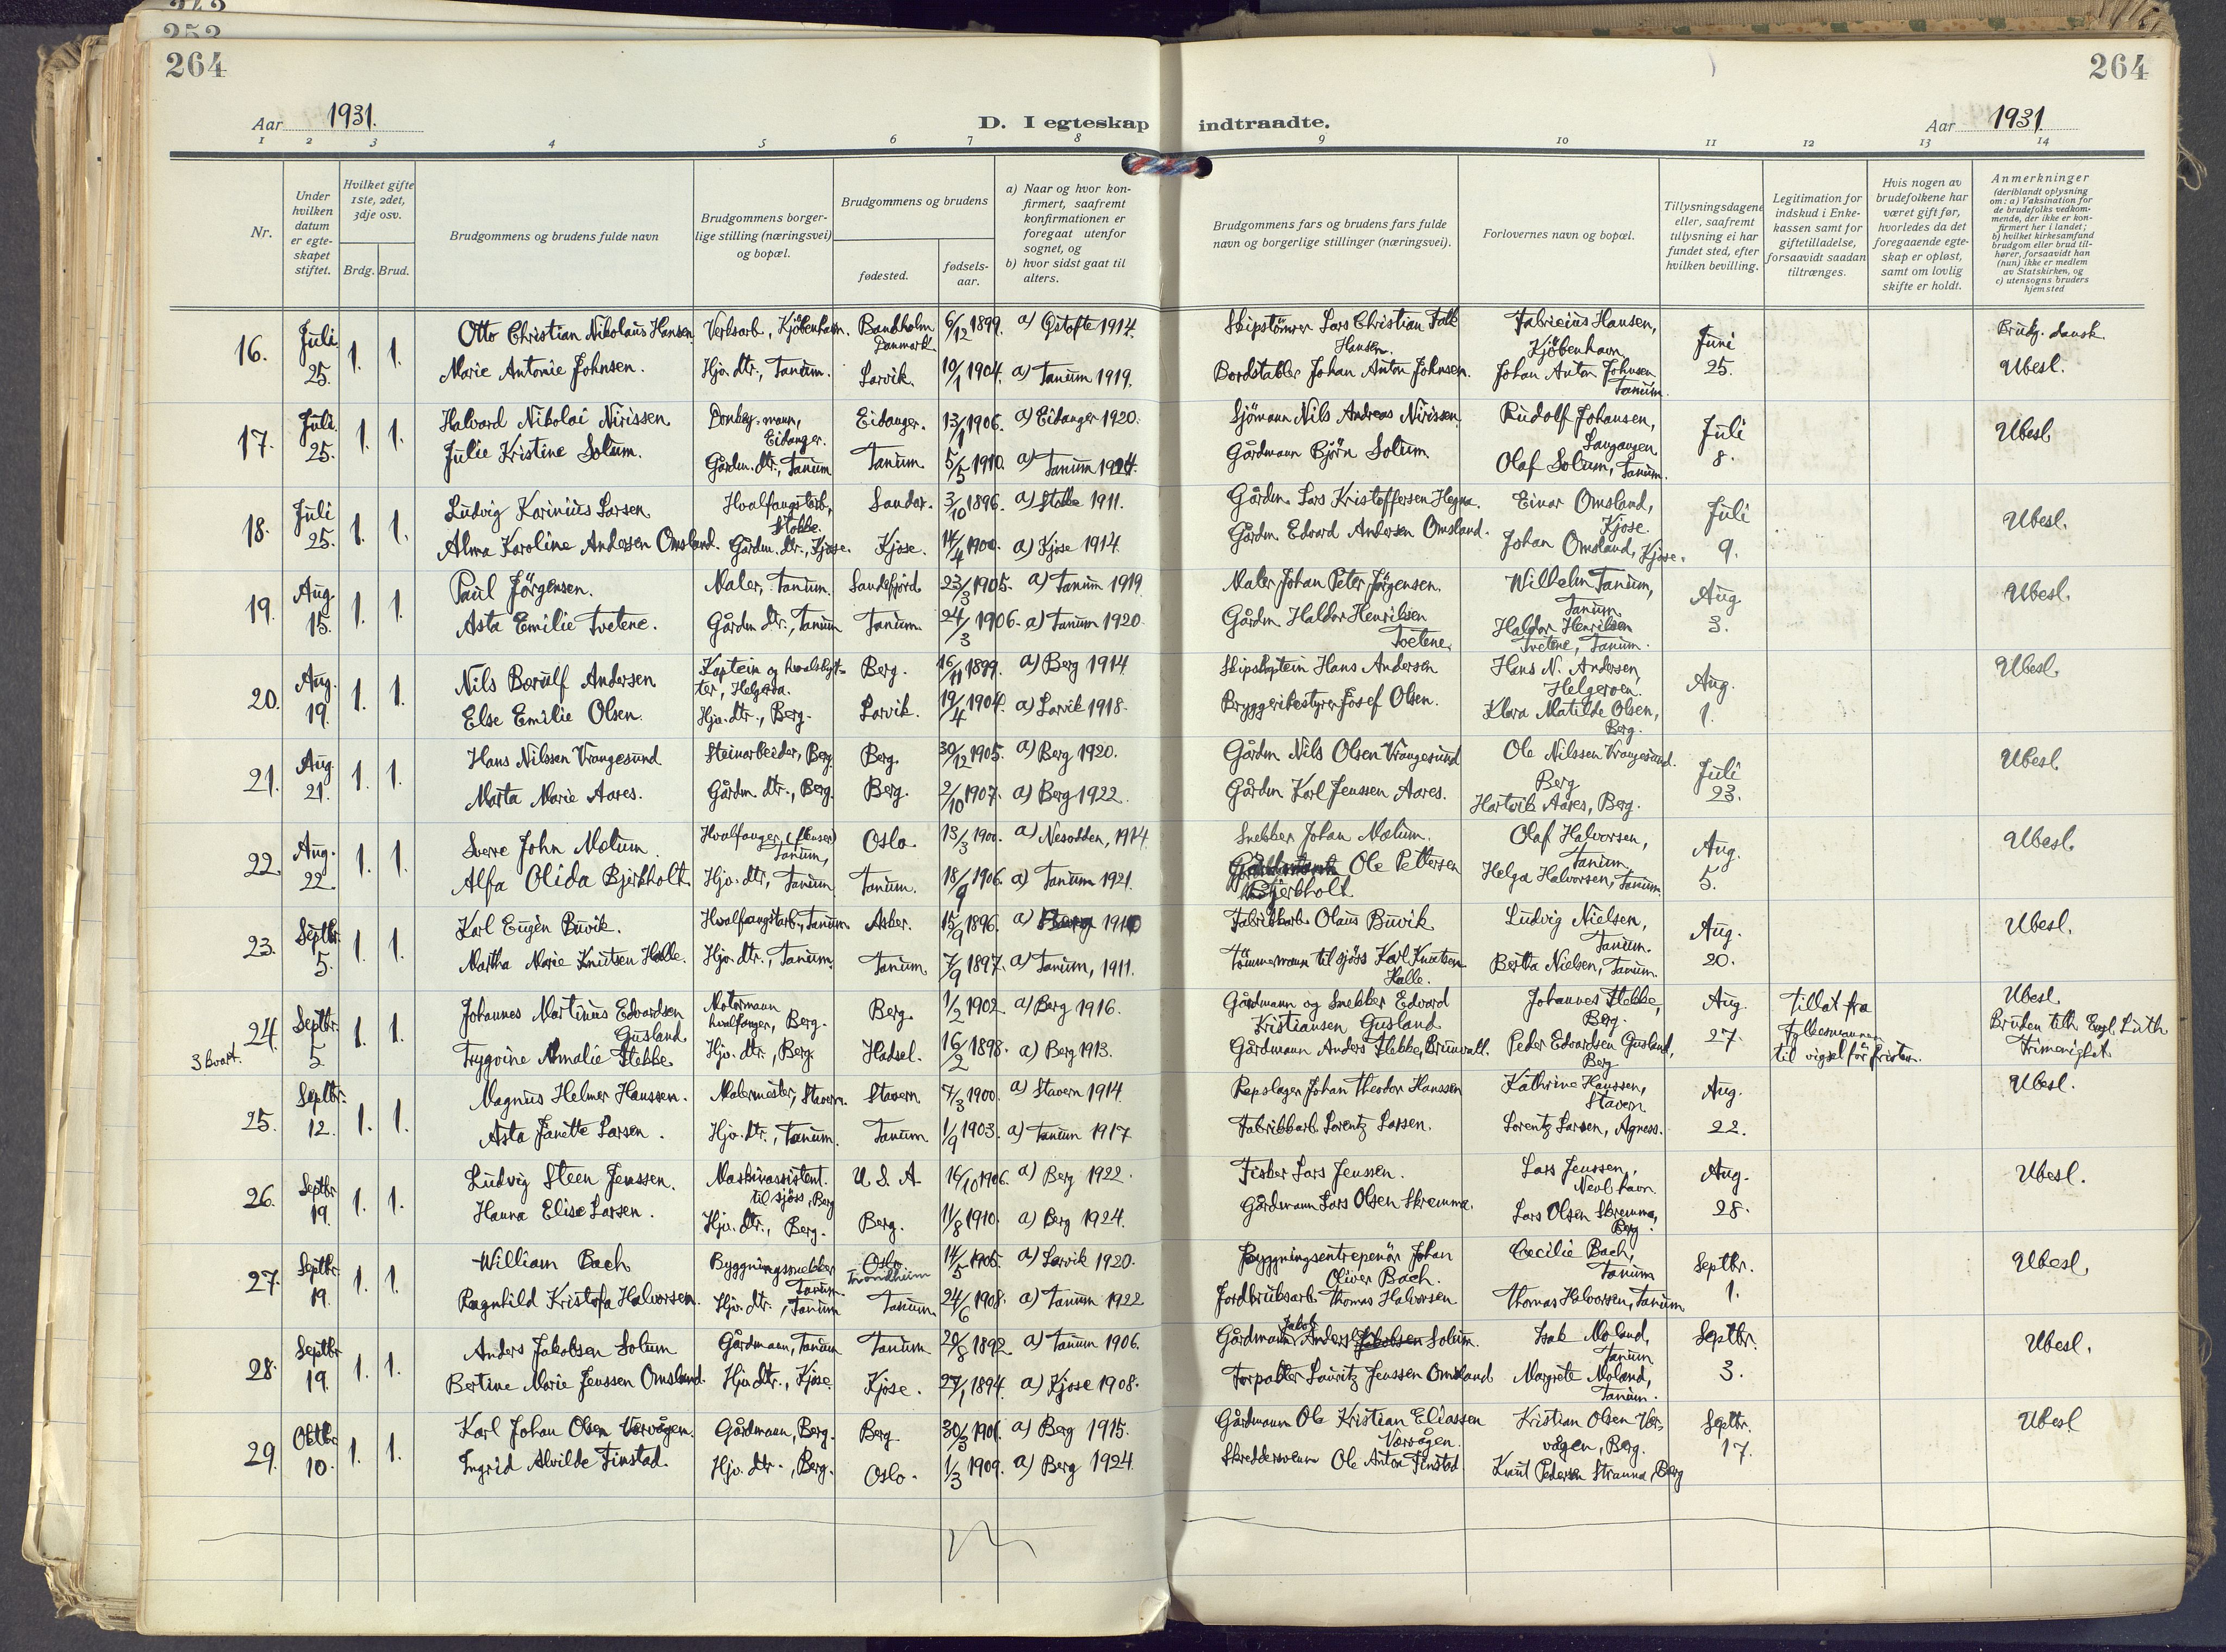 264
264
Aar 1931.
D. I egteskap indtraadte.
Aar 1931.
1 2 3 4 5 6 7 8 9 10 11 12 13 14
Nr.
Under hvilken datum er egteskapet stiftet.
Hvilket gifte 1ste, 2det, 3dje osv.
Brdg. Brud.
Brudgommens og brudens fulde navn
Brudgommens borgerlige stilling (næringsvei) og bopæl.
Brudgommens og brudens
fødested.
fødselsaar.
a) Naar og hvor konfirmert, saafremt konfirmationen er foregaat utenfor sognet, og
b) hvor sidst gaat til alters.
Brudgommens fars og brudens fars fulde navn og borgerlige stillinger (næringsvei).
Forlovernes navn og bopæl.
Tillysningsdagene eller, saafremt tillysning ei har fundet sted, efter hvilken bevilling.
Legitimation for indskud i Enkekassen samt for giftetilladelse, forsaavidt saadan tiltrænges.
Hvis nogen av brudefolkene har været gift før, hvorledes da det foregaaende egteskap er opløst, samt om lovlig skifte er holdt.
Anmerkninger
(deriblandt oplysning om: a) Vaksination for de brudefolks vedkommende, der ikke er konfirmert her i landet; b) hvilket kirkesamfund brudgom eller brud tilhører, forsaavidt han (hun) ikke er medlem av Statskirken, og c) utensogns bruders hjemsted
16. Juli 25. 1. 1. Otto Christian Nikolaus Hansen Verksarb., Kjöbenhavn. Bandholm Danmark 6/12 1899. a) Gstofte 1914. Skipstömrer Lars Christian Falk Hansen. Fabricius Hansen, Kjöbenhavn Juni 25. Brudg. dansk
Marie Antonie Johnsen. Hjv. dtr., Tanum. Larvik. 10/1 1904. a) Tanum 1919. Bordstabler Johan Anton Johnsen. Johan Anton Johnsen Tanum. Ubesl.
17. Juli 25. 1. 1. Halvard Nikolai Nirissen Eidanger. Eidanger. 13/1 1906. a) Eidanger 1920. Sjömann Nils Andreas Nirissen. Rudolf Johansen, Langangen Juli 8. Ubesl.
Julie Kristine Solum. Gårdm. dtr., Tanum Tanum. 5/5 1910. a) Tanum 1924. Gårdmann Björn Solum Olaf Solum, Tanum.
18. Juli 25. 1. 1. Ludvig Karinius Larsen Hvalfangstarb., Stokke. Sandar. 3/10 1896. a) Stokke 1911. Gårdm. Lars Kristoffersen Hegna. Einar Omsland, Kjose Juli 9. Ubesl.
Alma Karoline Andersen Omsland. Gårdm. dtr., Kjose. Kjose. 14/4 1900. a) Kjose 1914. Gårdm Edvard Andersen Omsland. Johan Omsland, Kjose.
19. Aug. 15. 1. 1. Paul Jörgensen. Maler, Tanum. Sandefjord. 23/3 1905. a) Tanum 1919. Maler Johan Peter Jörgensen. Wilhelm Tanum, Tanum. Aug 3. Ubesl.
Asta Emilie Tvetene. Gårdm dtr., Tanum Tanum. 24/3 1906. a) Tanum 1920. Gårdm. Haldor Henriksen Tvetene. Haldor Henriksen Tvetene, Tanum.
20. Aug. 19. 1. 1. Nils Borulf Andersen Kaptein og hvalskytter, Helgeroa. Berg. 16/11 1899. a) Berg 1914. Skipskaptein Hans Andersen Hans N. Andersen, Helgeroen. Aug. 1. Ubesl.
Else Emilie Olsen. Hjv. dtr., Berg. Larvik. 19/4 1904. a) Larvik 1918. Bryggeribestyrer Josef Olsen. Klara Matilde Olsen, Berg.
21. Aug 21. 1. 1. Hans Nilssen Vrangesund Steinarbeider, Berg Berg. 30/12 1905. a) Berg 1920. Gårdm Nils Olsen Vrangesund Ole Nilssen Vrangesund. Berg Juli 23. Ubesl.
Marta Marie Aares. Gårdm. dtr., Berg. Berg. 2/10 1907. a) Berg 1922. Gårdm Karl Jenssen Aares. Hartvik Aares, Berg.
22. Aug. 22. 1. 1. Sverre John Mølum. Hvalfanger (flenser) Tanum, Oslo 13/3 1900. a) Nesodden, 1914. Snekker Johan Mølum. Olaf Halvorsen, Tanum Aug. 5. Ubesl.
Alfa Olida Bjerkholt. Hjv. dtr, Tanum Tanum. 18/9 1906. a) Tanum 1921. Ole Pettersen Bjerkholt Helga Halvorsen, Tanum
23. Septbr. 5. 1. 1. Karl Eugén Buvik. Hvalfangstarb., Tanum. Asker. 15/9 1896. a) 1910 Fabrikkarb. Olaus Buvik Ludvig Nielsen, Tanum. Aug. 20. Ubesl.
Martha Marie Knutsen Halle. Hjv. dtr., Tanum. Tanum. 7/9 1897. a) Tanum, 1911. Tömmermann til sjöss Karl Knutsen Halle. Bertha Nielsen, Tanum.
24. 3 kvart. Septbr. 5. 1. 1. Johannes Martinius Edvardsen Gusland. Motormann hvalfanger, Berg. Berg. 1/2 1902 a) Berg 1916. Gårdmann og Snekker Edvard Kristiansen Gusland Johannes Stekke, Berg. Aug. 27. Tillat fra Fylkesmannen til vigsel før fristen. Ubesl
Trygvine Annalie Stekke Hjv. dtr., Berg. Hadsel. 16/2 1898. a) Berg 1913. Gårdmann Anders Stekke, Brunvall. Peder Edvardsen Gusland, Berg Bruden tilh. Evgl. Luth Frimenighet
25. Septbr. 12. 1. 1. Magnus Helmer Hanssen. Malermester, Stavern. Stavern. 7/3 1900. a) Stavern 1914. Repslager Johan Theodor Hanssen Kathrine Hanssen, Stavern Aug. 22. Ubesl.
Asta Janette Larsen. Hjv. dtr., Tanum. Tanum. 1/9 1903. a) Tanum 1917 Fabrikkarb Lorentz Larsen. Lorentz Larsen, Agness.
26. Septbr 19. 1. 1. Ludvig Steen Jenssen. Maskinassistent. til sjöss, Berg U. S. A. 16/10 1906. a) Berg 1922. Fisker Lars Jenssen. Lars Jenssen, Nevlhavn. Aug. 28. Ubesl.
Hanna Elise Larsen. Hjv. dtr., Berg. Berg. 11/8 1910. a) Berg 1924. Gårdmann Lars Olsen Skremma. Lars Olsen Skremma, Berg.
27. Septbr. 19. 1. 1. William Bach Byggningssnekker Tanum. Oslo Trondheim 14/5 1905. a) Larvik 1920. Byggningsentrepenör Johan Oliver Bach. Cecilie Bach, Tanum Septbr. 1. Ubesl.
Ragnhild Kristofa Halvorsen. Hjv. dtr., Tanum Tanum. 24/6 1908. a) Tanum 1922 Jordbruksarb. Thomas Halvorsen Thomas Halvorsen, Tanum
28. Septbr 19. 1. 1. Anders Jakobsen Solum Gårdmann, Tanum Tanum 20/8 1892 a) Tanum 1906. Gårdmann Jakob Anders Jakobsen Solum. Isak Moland, Tanum. Septbr. 3. Ubesl.
Bertine Marie Jenssen Omsland. Hjv. dtr., Kjose. Kjose. 27/1 1894. a) Kjose 1908. Lauritz Jenssen Omsland Margrete Moland, Tanum.
29. Oktbr 10. 1. 1. Karl Johan Olsen Værvågen. Gårdmann, Berg. Berg 30/3 1901. a) Berg 1915. Gårdmann Ole Kristian Eliassen Værvågen. Kristian Olsen Værvågen, Berg. Septbr. 17. Ubesl
Ingrid Alvilde Finstad. Hjv. dtr., Berg. Oslo. 1/3 1909. a) Berg 1924. Skreddersvenn Ole Anton Finstad Knut Pedersen Stranna, Berg